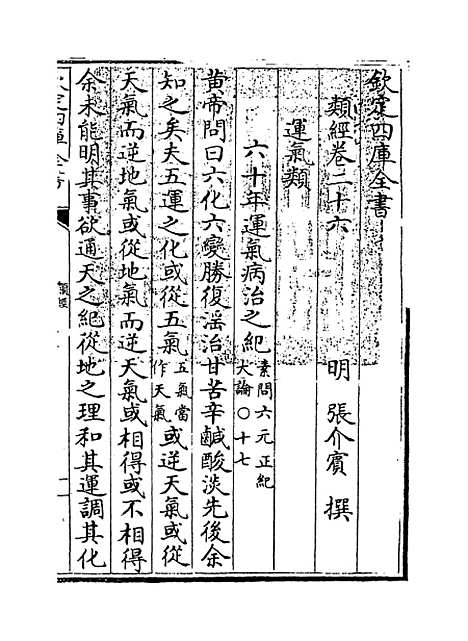 欽定四庫全書
類經卷二十六
明 張介賓 撰
運氣類
六十年運氣病治之紀素問六元正紀大論○十七
黄帝問曰六化六變勝復淫治甘苦辛鹹酸淡先後余
知之矣夫五運之化或從五氣五氣當作天氣或逆天氣或從
天氣而逆地氣或從地氣而逆天氣或相得或不相得
余未能明其事欲通天之紀從地之理和其運調其化
類經